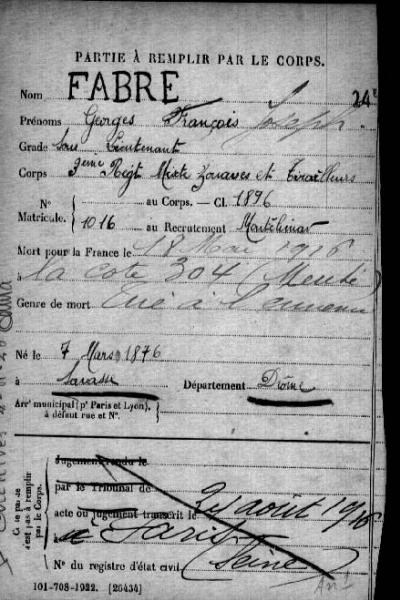 PARTIE À REMPLIR PAR LE CORPS.
Nom FABRE
24e
Prénoms Georges François Joseph.
Grade Sous Lieutenant
Corps 3eme Régt Mixte Zouaves et Tirailleurs
N° au Corps. — Cl. 1896
Matricule. 1016 au Recrutement Montélimar
Mort pour la France le 18 Mai 1916
à la cote 304 (Meuse)
Genre de mort Tué à l'ennemi
Né le 7 Mars 1876
à Savasse Département Drôme
Arrt municipal (pr Paris et Lyon),
à défaut rue et N°.
Ce cadre
n'est pas à remplir
par le Corps.
Jugement rendu le
par le Tribunal de
acte ou jugement transcrit le 24 août 1916
à Paris
(Seine)
N° du registre d'état civil
101-708-1922. [26434]